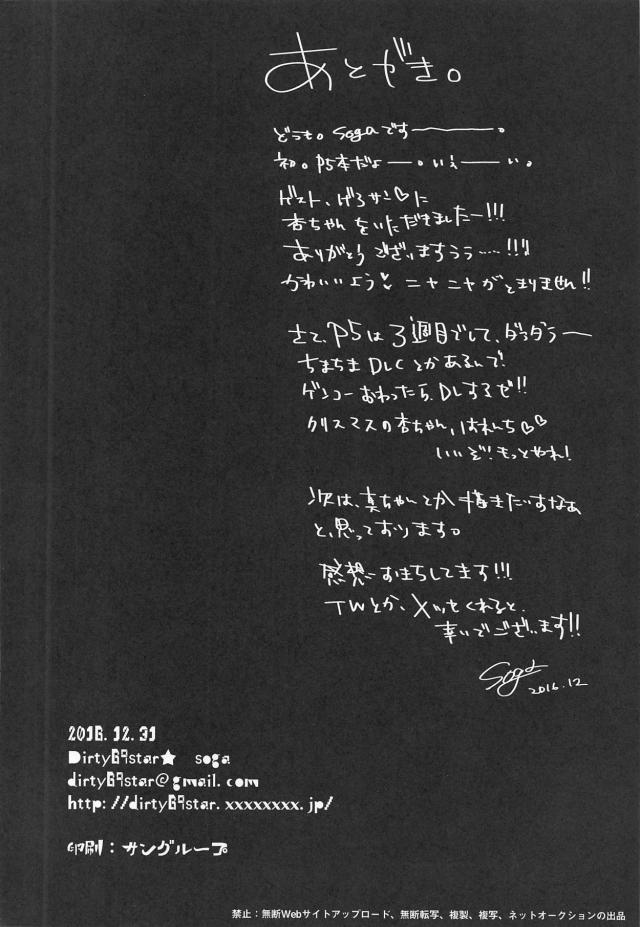 あとがき。
どうも。sogaです―――。
初。P5本だよ――。いえ――い。
ゲスト、げろサン♡に
杏ちゃんをいただきましたー!!!
ありがとうございますぅぅ……!!!
かわいいよう♥ ニヤニヤがとまりません!!
さて、P5は3週目でして、ダラダラー
ちまちまDLCとかあるんで、
ゲンコーおわったら、DLするぜ!!
クリスマスの杏ちゃん、はれんち♡♡
いいぞ!もっとやれ!
次は、真ちゃんとか描きたいすなぁ
と、思っております。
感想おまちしてます!!!
TWとか、メッセくれると、
幸いでございます!!
Soga
2016.12
2016. 12. 31
Dirty69star★ soga
dirty69star@gmail.com
http://dirty69star.xxxxxxxx.jp/
印刷：サングループ
禁止：無断Webサイトアップロード、無断転写、複製、複写、ネットオークションの出品